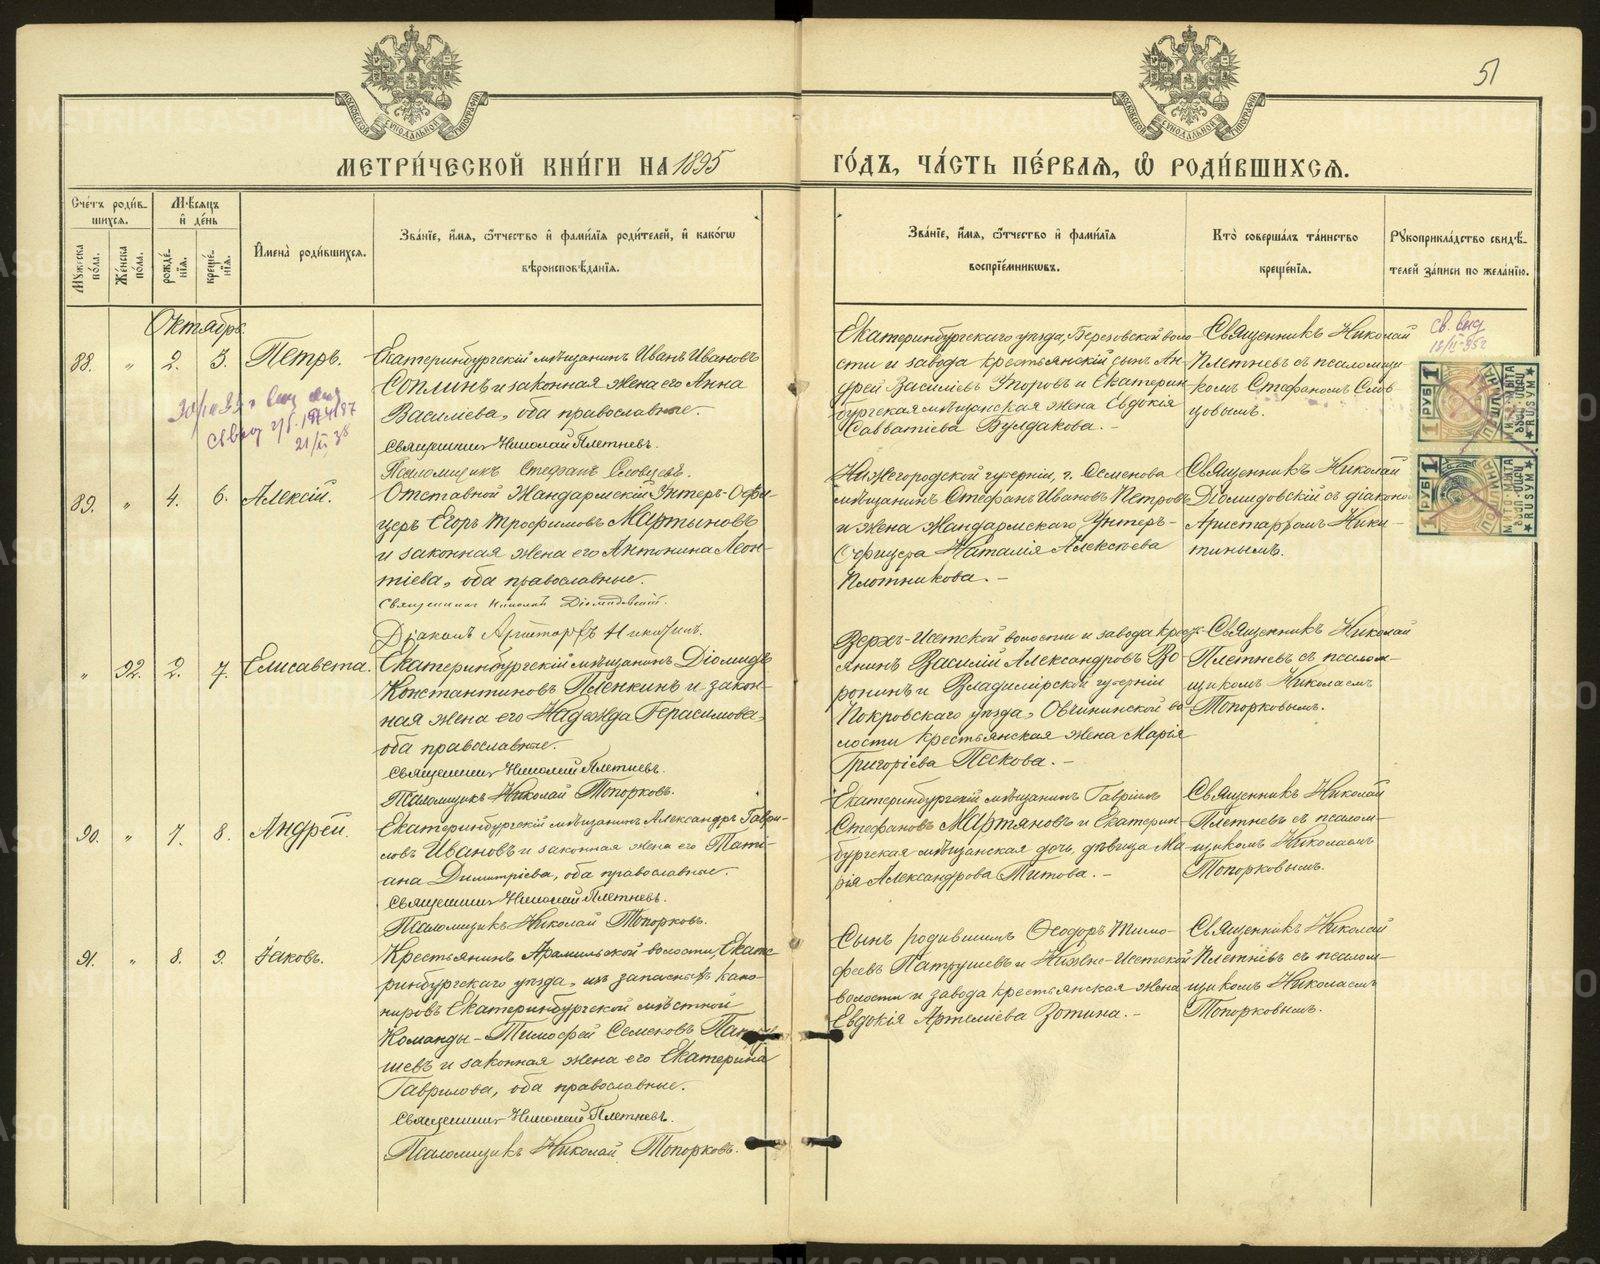 51
МОСКОВСКОЙ СУНОДАЛЬНОЙ ТИПОГРАФІИ
МОСКОВСКОЙ СУНОДАЛЬНОЙ ТИПОГРАФІИ
МЕТРИ́ЧЕСКОЙ КНИ́ГИ НА 1895
ГО́ДЪ, ЧА́СТЬ ПЕ́РВАѦ, Ѡ҆ РОДИ́ВШИХСѦ.
Сче́тъ роди́в-
шихсѧ.
Мꙋ́жеска пола.
Же́нска пола.
Мѣ́сѧцъ
и҆ де́нь
рожде́-
нїѧ.
креще́-
нїѧ.
И҆мена̀ роди́вшихсѧ.
Зва́нїе, и҆́мѧ, ѻ҆́тчество и҆ фами́лїѧ роди́телей, и҆ како́гѡ
вѣроисповѣ́данїѧ.
Зва́нїе, и҆́мѧ, ѻ҆́тчество и҆ фами́лїѧ
воспрїе́мникѡвъ.
Кто̀ соверша́лъ та́инство
креще́нїѧ.
Рꙋкоприкла́дство свидѣ́-
телей за́писи по жела́нїю.
Октябрь.
88. „ 2. 3. Петръ.
Екатеринбургскій мѣщанинъ Иванъ Ивановъ
Соплинъ и законная жена его Анна
Василіева, оба православные.
Священникъ Николай Плетневъ.
Псаломщикъ Стефанъ Словцовъ.
Екатеринбургскаго уѣзда, Березовской воло-
сти и завода крестьянскій сынъ Ан-
дрей Василіевъ Упоровъ и Екатерин-
бургская мѣщанская жена Евдокія
Савватіева Булдакова. –
Священникъ Николай
Плетневъ съ псаломщи-
комъ Стефаномъ Слов-
цовымъ.
св. выд
1 РУБ 1
ПОШЛИНА
RUSYM
1 РУБ 1
ПОШЛИНА
RUSYM
89. „ 4. 6. Алексій.
Отставной Жандармскій Унтеръ-Офи-
церъ Егоръ Трофимовъ Мартыновъ
и законная жена его Антонина Леон-
тіева, оба православные.
Священникъ Николай Діомидовскій.
Діаконъ Аристархъ Никитинъ.
Нижегородской губерніи, г. Семенова
мѣщанинъ Стефанъ Ивановъ Петровъ
и жена Жандармскаго Унтеръ-
Офицера Наталія Алексѣева
Плотникова. –
Священникъ Николай
Діомидовскій съ діакономъ
Аристархомъ Ники-
тинымъ.
„ 92. 2. 7. Елисавета.
Екатеринбургскій мѣщанинъ Діомидъ
Константиновъ Пленкинъ и закон-
ная жена его Надежда Герасимова,
оба православные.
Священникъ Николай Плетневъ.
Псаломщикъ Николай Топорковъ.
Верхъ-Исетской волости и завода крестья-
нинъ Василій Александровъ Во-
ронинъ и Владимірской губерніи
Покровскаго уѣзда, Овчининской во-
лости крестьянская жена Марія
Григоріева Пескова. –
Священникъ Николай
Плетневъ съ псалом-
щикомъ Николаемъ
Топорковымъ.
90. „ 7. 8. Андрей.
Екатеринбургскій мѣщанинъ Александръ Гаври-
ловъ Ивановъ и законная жена его Тати-
ана Димитріева, оба православные.
Священникъ Николай Плетневъ.
Псаломщикъ Николай Топорковъ.
Екатеринбургскій мѣщанинъ Гавріилъ
Стефановъ Мартяновъ и Екатерин-
бургская мѣщанская дочь, дѣвица Ма-
рія Александрова Титова. –
Священникъ Николай
Плетневъ съ псалом-
щикомъ Николаемъ
Топорковымъ.
91. „ 8. 9. Іаковъ.
Крестьянинъ Арамильской волости, Екате-
ринбургскаго уѣзда, изъ запасныхъ кано-
нировъ Екатеринбургской мѣстной
Команды – Тимофей Семеновъ Патру-
шевъ и законная жена его Екатерина
Гаврилова, оба православные.
Священникъ Николай Плетневъ.
Псаломщикъ Николай Топорковъ.
Сынъ родившимъ Ѳеодоръ Тимо-
феевъ Патрушевъ и Нижне-Исетской
волости и завода крестьянская жена
Евдокія Артеміева Зотина. –
Священникъ Николай
Плетневъ съ псалом-
щикомъ Николаемъ
Топорковымъ.